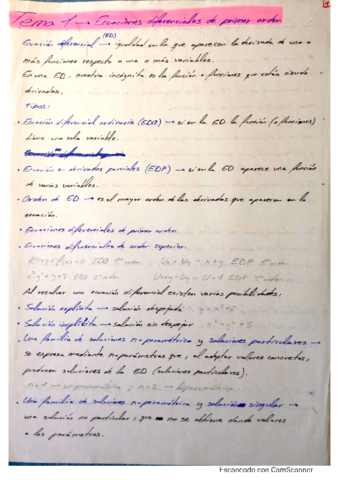 Tema 1 → Ecuaciones diferenciales de primer orden
(ED)
Ecuación diferencial → igualdad en la que aparecen la derivada de una o
más funciones respecto a una o más variables.
En una ED, nuestra incógnita es la función o funciones que están siendo
derivadas.
Tipos:
• Ecuación diferencial ordinaria (EDO) → si en la ED la función (o funciones)
tiene una sola variable.
• Ecuación en derivadas parciales (EDP) → si en la ED aparece una función
de varias variables.
• Orden de ED → es el mayor orden de las derivadas que aparecen en la
ecuación.
• Ecuaciones diferenciales de primer orden
• Ecuaciones diferenciales de orden superior.
EDO EDP
EDO EDP
Al resolver una ecuación diferencial existen varias posibilidades:
• Solución explícita → solución despejada
• Solución implícita → solución sin despejar
• Una familia de soluciones n-paramétrica y soluciones particulares →
se expresa mediante n-parámetros que, al adoptar valores concretos,
producen soluciones de la ED (soluciones particulares).
n=1 → uniparamétrica ; n=2 → biparamétrica
• Una familia de soluciones n-paramétrica y solución singular →
una solución no particular, que no se obtiene dando valores
a los parámetros.
Escaneado con CamScanner